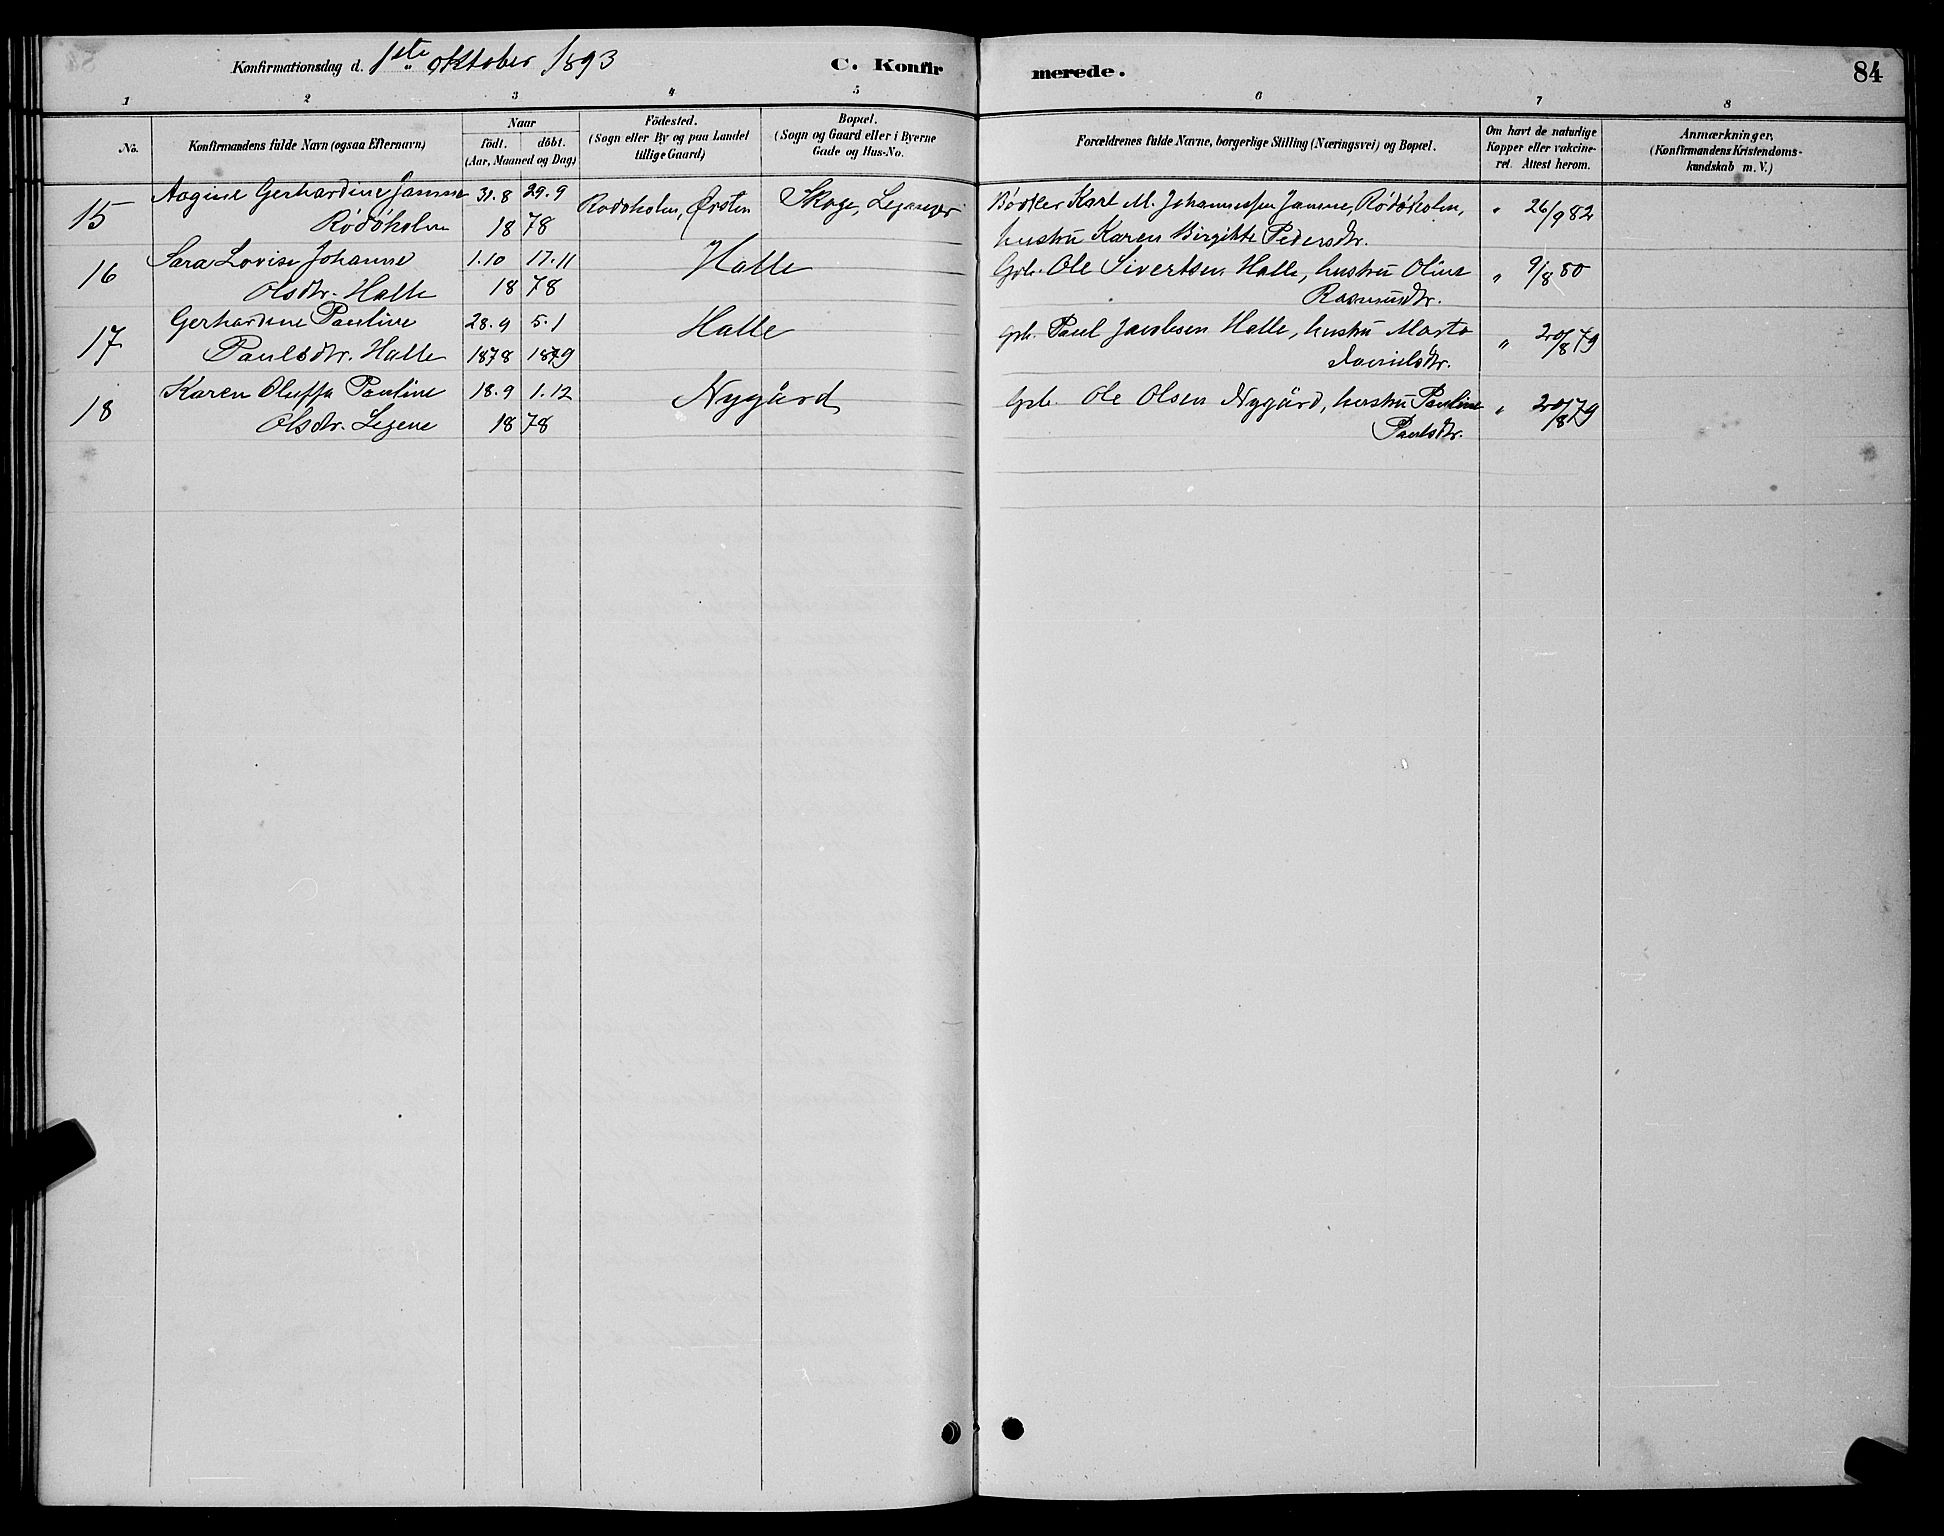 Konfirmationsdag d. 1ste oktober 1893
C. Konfirmerede.
84
1 2 3 4 5 6 7 8
No.
Konfirmandens fulde Navn (ogsaa Efternavn)
Naar
födt. döbt.
(Aar, Maaned og Dag)
Födested.
(Sogn eller By og paa Landet
tillige Gaard)
Bopæl.
(Sogn og Gaard eller i Byerne
Gade og Hus-No.
Forældrenes fulde Navne, borgerlige Stilling (Næringsvei) og Bopæl.
Om havt de naturlige
Kopper eller vakcine-
ret. Attest herom.
Anmærkninger,
(Konfirmandens Kristendoms-
kundskab m. V.)
15 Aagine Gerhardine Jamne 31.8 29.9 Rödöholm, Ørsten Skoge, Leganger Bödker Karl M. Johannessen Jamne, Rödöholm, " 26/9 82
Rödöholm 1878 hustru Karen Birgitte Pedersdtr.
16 Sara Lovise Johanne 1.10 17.11 Halle Grb. Ole Sivertsen Halle, hustru Oline " 9/8 80
Olsdtr. Halle 1878 Rasmusdtr.
17 Gerhardine Pauline 28.9 5.1 Halle Grb. Paul Jacobsen Halle, hustru Marta " 20/8 79
Paulsdtr. Halle 1878 1879 Danielsdtr.
18 Karen Oluffa Pauline 18.9 1.12 Nygård Grb. Ole Olsen Nygård, hustru Pauline " 20/8 79
Olsdtr. Legene 1878 Paulsdtr.